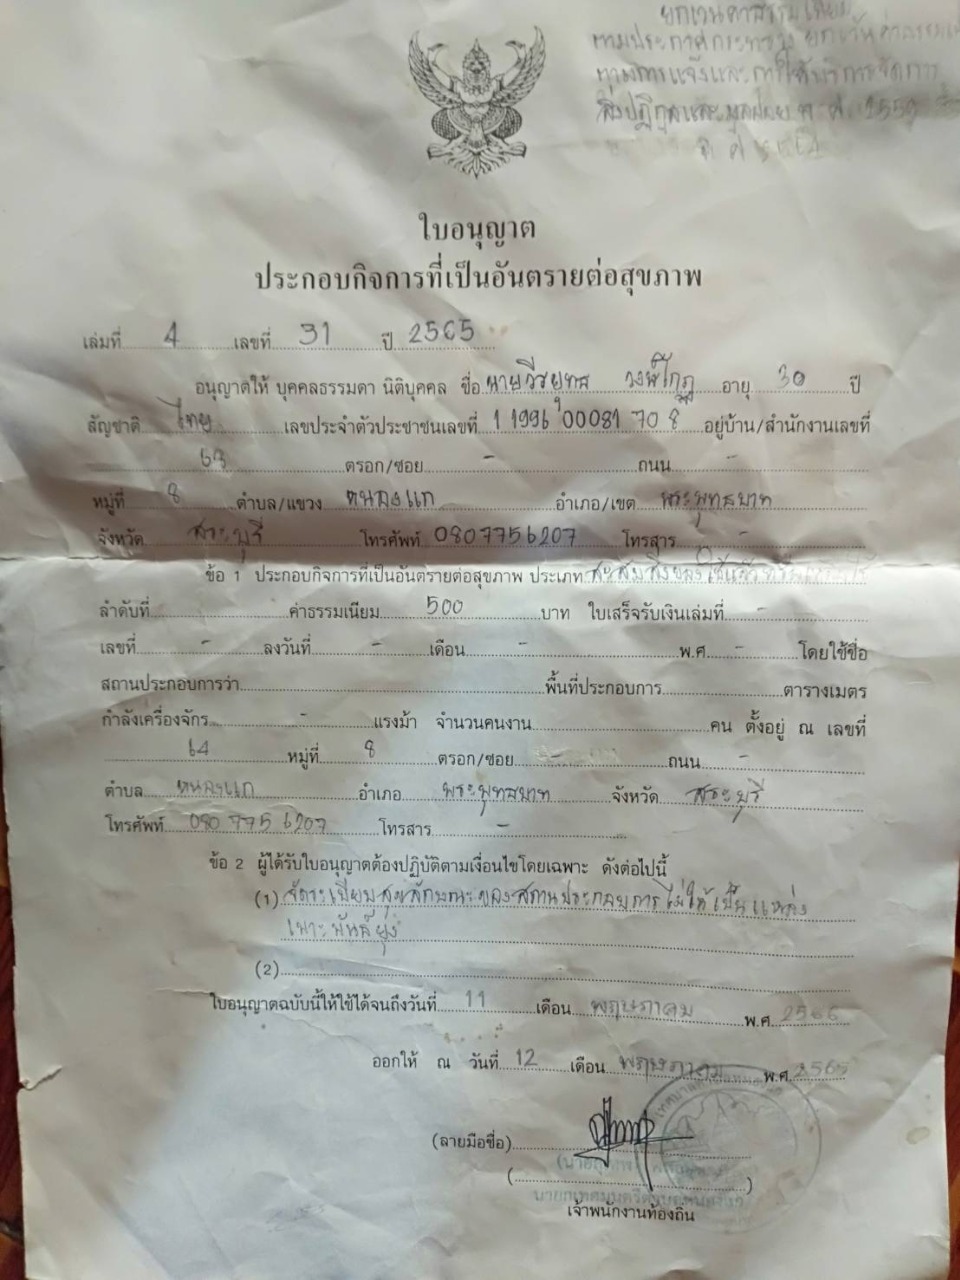 ยกเว้นค่าธรรมเนียม
ตามประกาศกระทรวง ยกเว้นค่าธรรมเนียม
สิ่งปฏิกูลและมูลฝอย พ.ศ. 2559
ใบอนุญาต
ประกอบกิจการที่เป็นอันตรายต่อสุขภาพ
เล่มที่ 4 เลขที่ 31 ปี 2565
อนุญาตให้ บุคคลธรรมดา นิติบุคคล ชื่อ นายวีรยุทธ อายุ 30 ปี
สัญชาติ ไทย เลขประจำตัวประชาชนเลขที่ 1 1996 00081 70 8 อยู่บ้าน/สำนักงานเลขที่
63 ตรอก/ซอย - ถนน -
หมู่ที่ 8 ตำบล/แขวง หนองแก อำเภอ/เขต พระพุทธบาท
จังหวัด สระบุรี โทรศัพท์ 0807756207 โทรสาร -
ข้อ 1 ประกอบกิจการที่เป็นอันตรายต่อสุขภาพ ประเภท สะสมสิ่งของใช้แล้ว
ลำดับที่ ค่าธรรมเนียม 500 บาท ใบเสร็จรับเงินเล่มที่ -
เลขที่ - ลงวันที่ - เดือน - พ.ศ. - โดยใช้ชื่อ
สถานประกอบการว่า พื้นที่ประกอบการ ตารางเมตร
กำลังเครื่องจักร - แรงม้า จำนวนคนงาน คน ตั้งอยู่ ณ เลขที่
64 หมู่ที่ 8 ตรอก/ซอย ถนน -
ตำบล หนองแก อำเภอ พระพุทธบาท จังหวัด สระบุรี
โทรศัพท์ 080 775 6207 โทรสาร -
ข้อ 2 ผู้ได้รับใบอนุญาตต้องปฏิบัติตามเงื่อนไขโดยเฉพาะ ดังต่อไปนี้
(1) จัดระเบียบสุขลักษณะของสถานประกอบการไม่ให้เป็นแหล่ง
เพาะพันธ์ยุง
(2)
ใบอนุญาตฉบับนี้ให้ใช้ได้จนถึงวันที่ 11 เดือน พฤษภาคม พ.ศ. 2566
ออกให้ ณ วันที่ 12 เดือน พฤษภาคม พ.ศ. 2565
(ลายมือชื่อ)
( )
เจ้าพนักงานท้องถิ่น